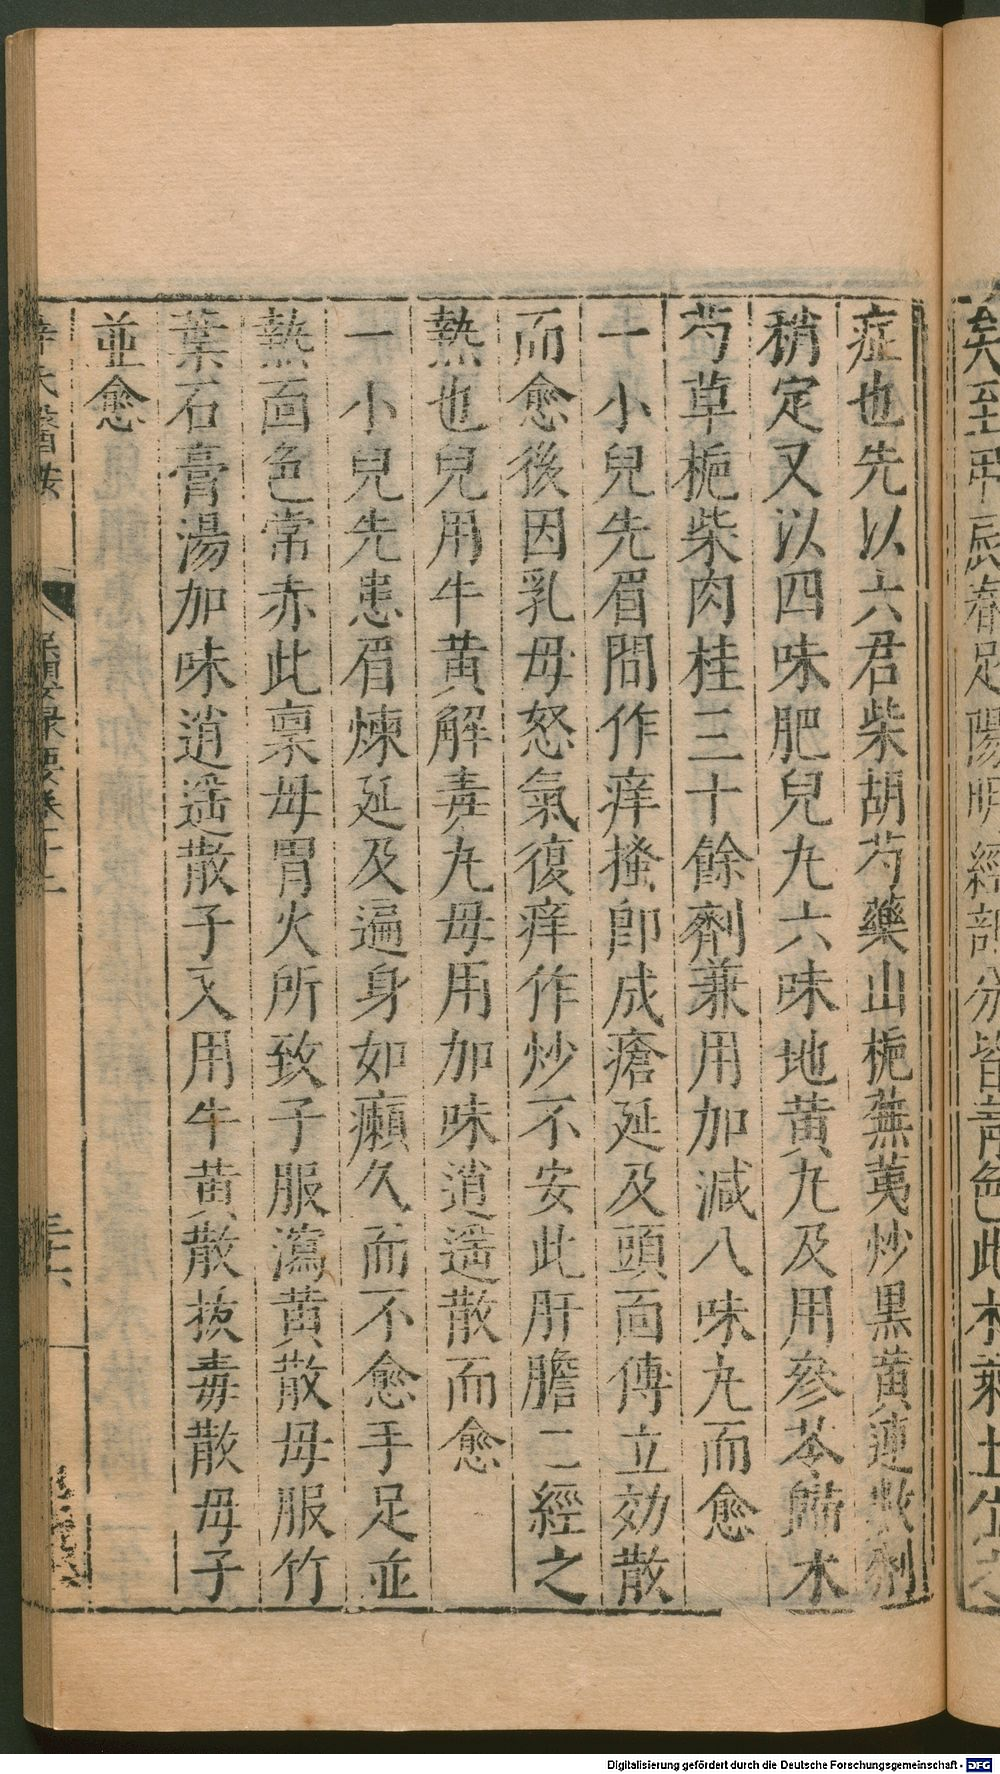 矣至甲辰春足陽明經部分皆青色此木乘土位之
症也先以六君柴胡芍藥山梔蕪荑炒黑黃連數劑
稍定又以四味肥兒丸六味地黃丸及用參苓歸木
芍草梔柴肉桂三十餘劑兼用加減八味丸而愈
一小兒先眉間作痒搔即成瘡延及頭面傅立効散
而愈後因乳母怒氣復痒作炒不安此肝膽二經之
熱也兒用牛黃解毒丸母用加味逍遥散而愈
一小兒先患眉煉延及遍身如癩久而不愈手足並
熱面色常赤此稟母胃火所致子服瀉黃散母服竹
葉石膏湯加味逍遥散子又用牛黃散拔毒散母子
並愈
薛氏醫按
保嬰撮要卷十二
三六
Digitalisierung gefördert durch die Deutsche Forschungsgemeinschaft - DFG